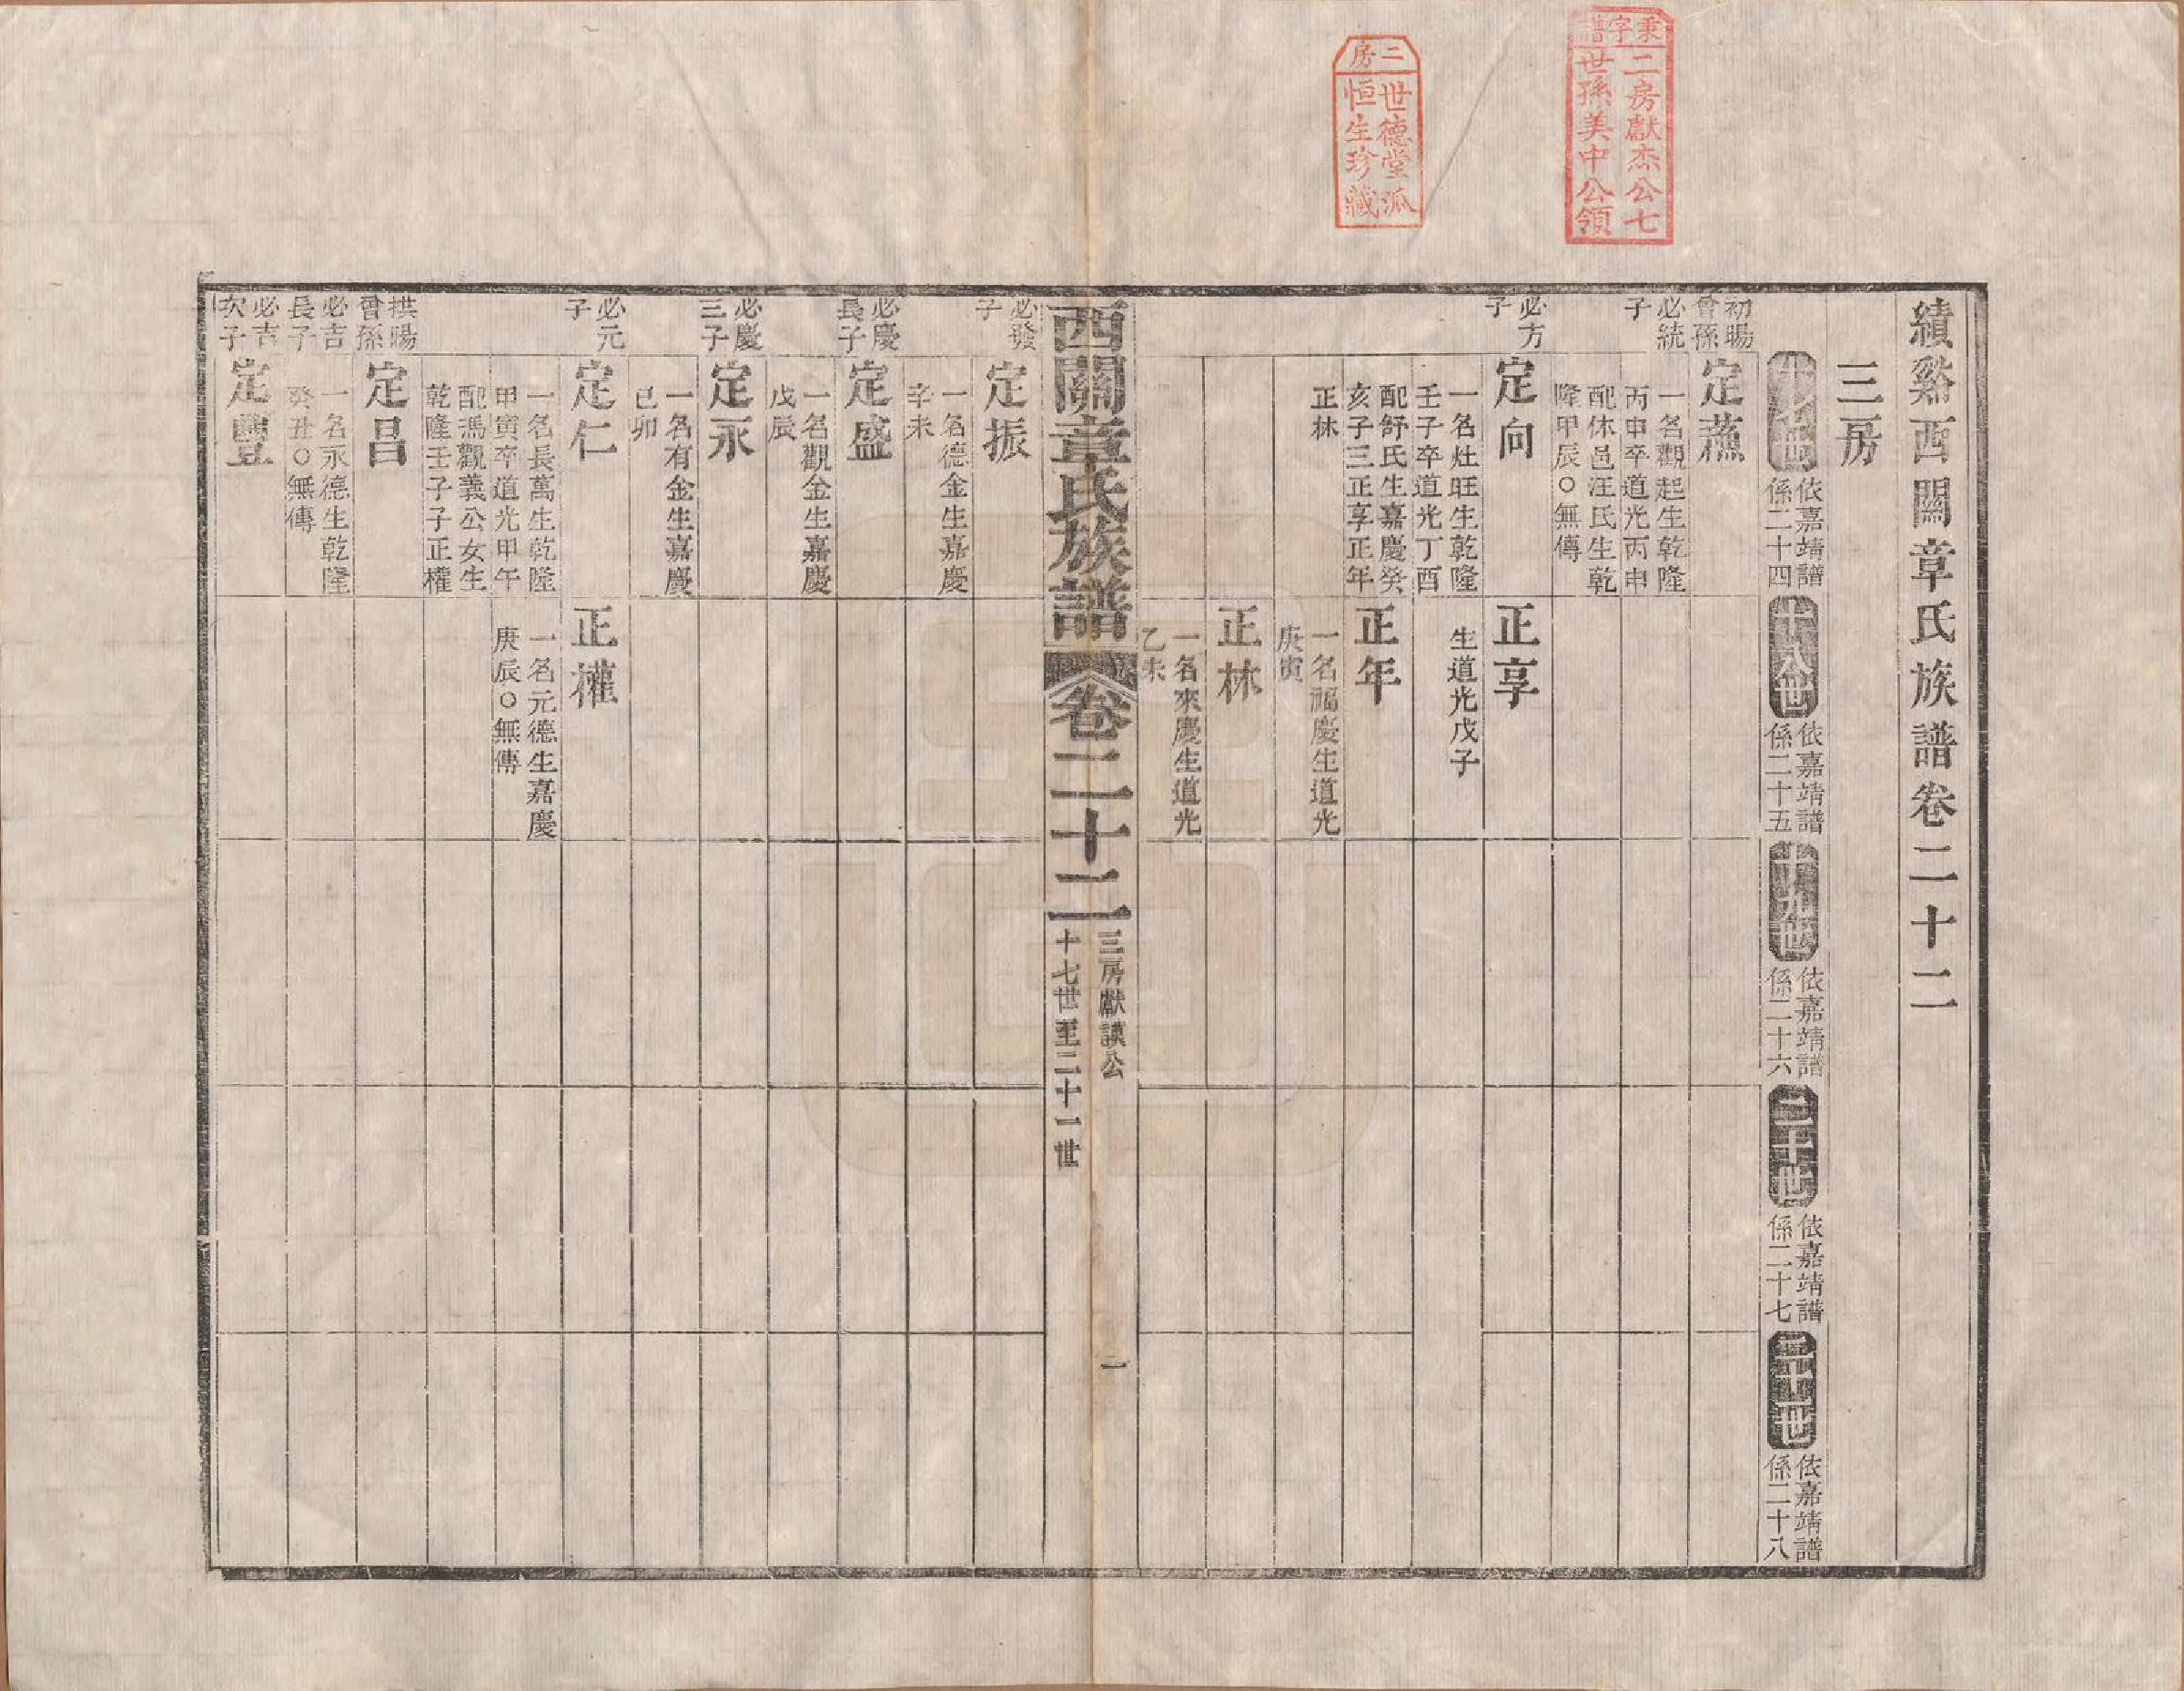 秉字譜
二房獻杰公七
世孫美中公領
二房
世德堂派
恒生珍藏
績谿西關章氏族譜卷二十二
三房
十七世
依嘉靖譜
係二十四
十八世
依嘉靖譜
係二十五
十九世
依嘉靖譜
係二十六
二十世
依嘉靖譜
係二十七
二十一世
依嘉靖譜
係二十八
初暘
曾孫
必統
子
定燕
一名觀起生乾隆
丙申卒道光丙申
配休邑汪氏生乾
隆甲辰○無傳
必方
子
定向
一名灶旺生乾隆
壬子卒道光丁酉
配舒氏生嘉慶癸
亥子三正享正年
正林
正享
生道光戊子
正年
一名福慶生道光
庚寅
正林
一名來慶生道光
乙未
西關章氏族譜
卷二十二
三房獻謨公
十七世至二十一世
一
必發
子
定振
一名德金生嘉慶
辛未
必慶
長子
定盛
一名觀金生嘉慶
戊辰
必慶
三子
定永
一名有金生嘉慶
己卯
必元
子
定仁
一名長萬生乾隆
甲寅卒道光甲午
配馮觀義公女生
乾隆壬子子正權
正權
一名元德生嘉慶
庚辰○無傳
拱暘
曾孫
必吉
長子
定昌
一名永德生乾隆
癸丑○無傳
必吉
次子
定豐